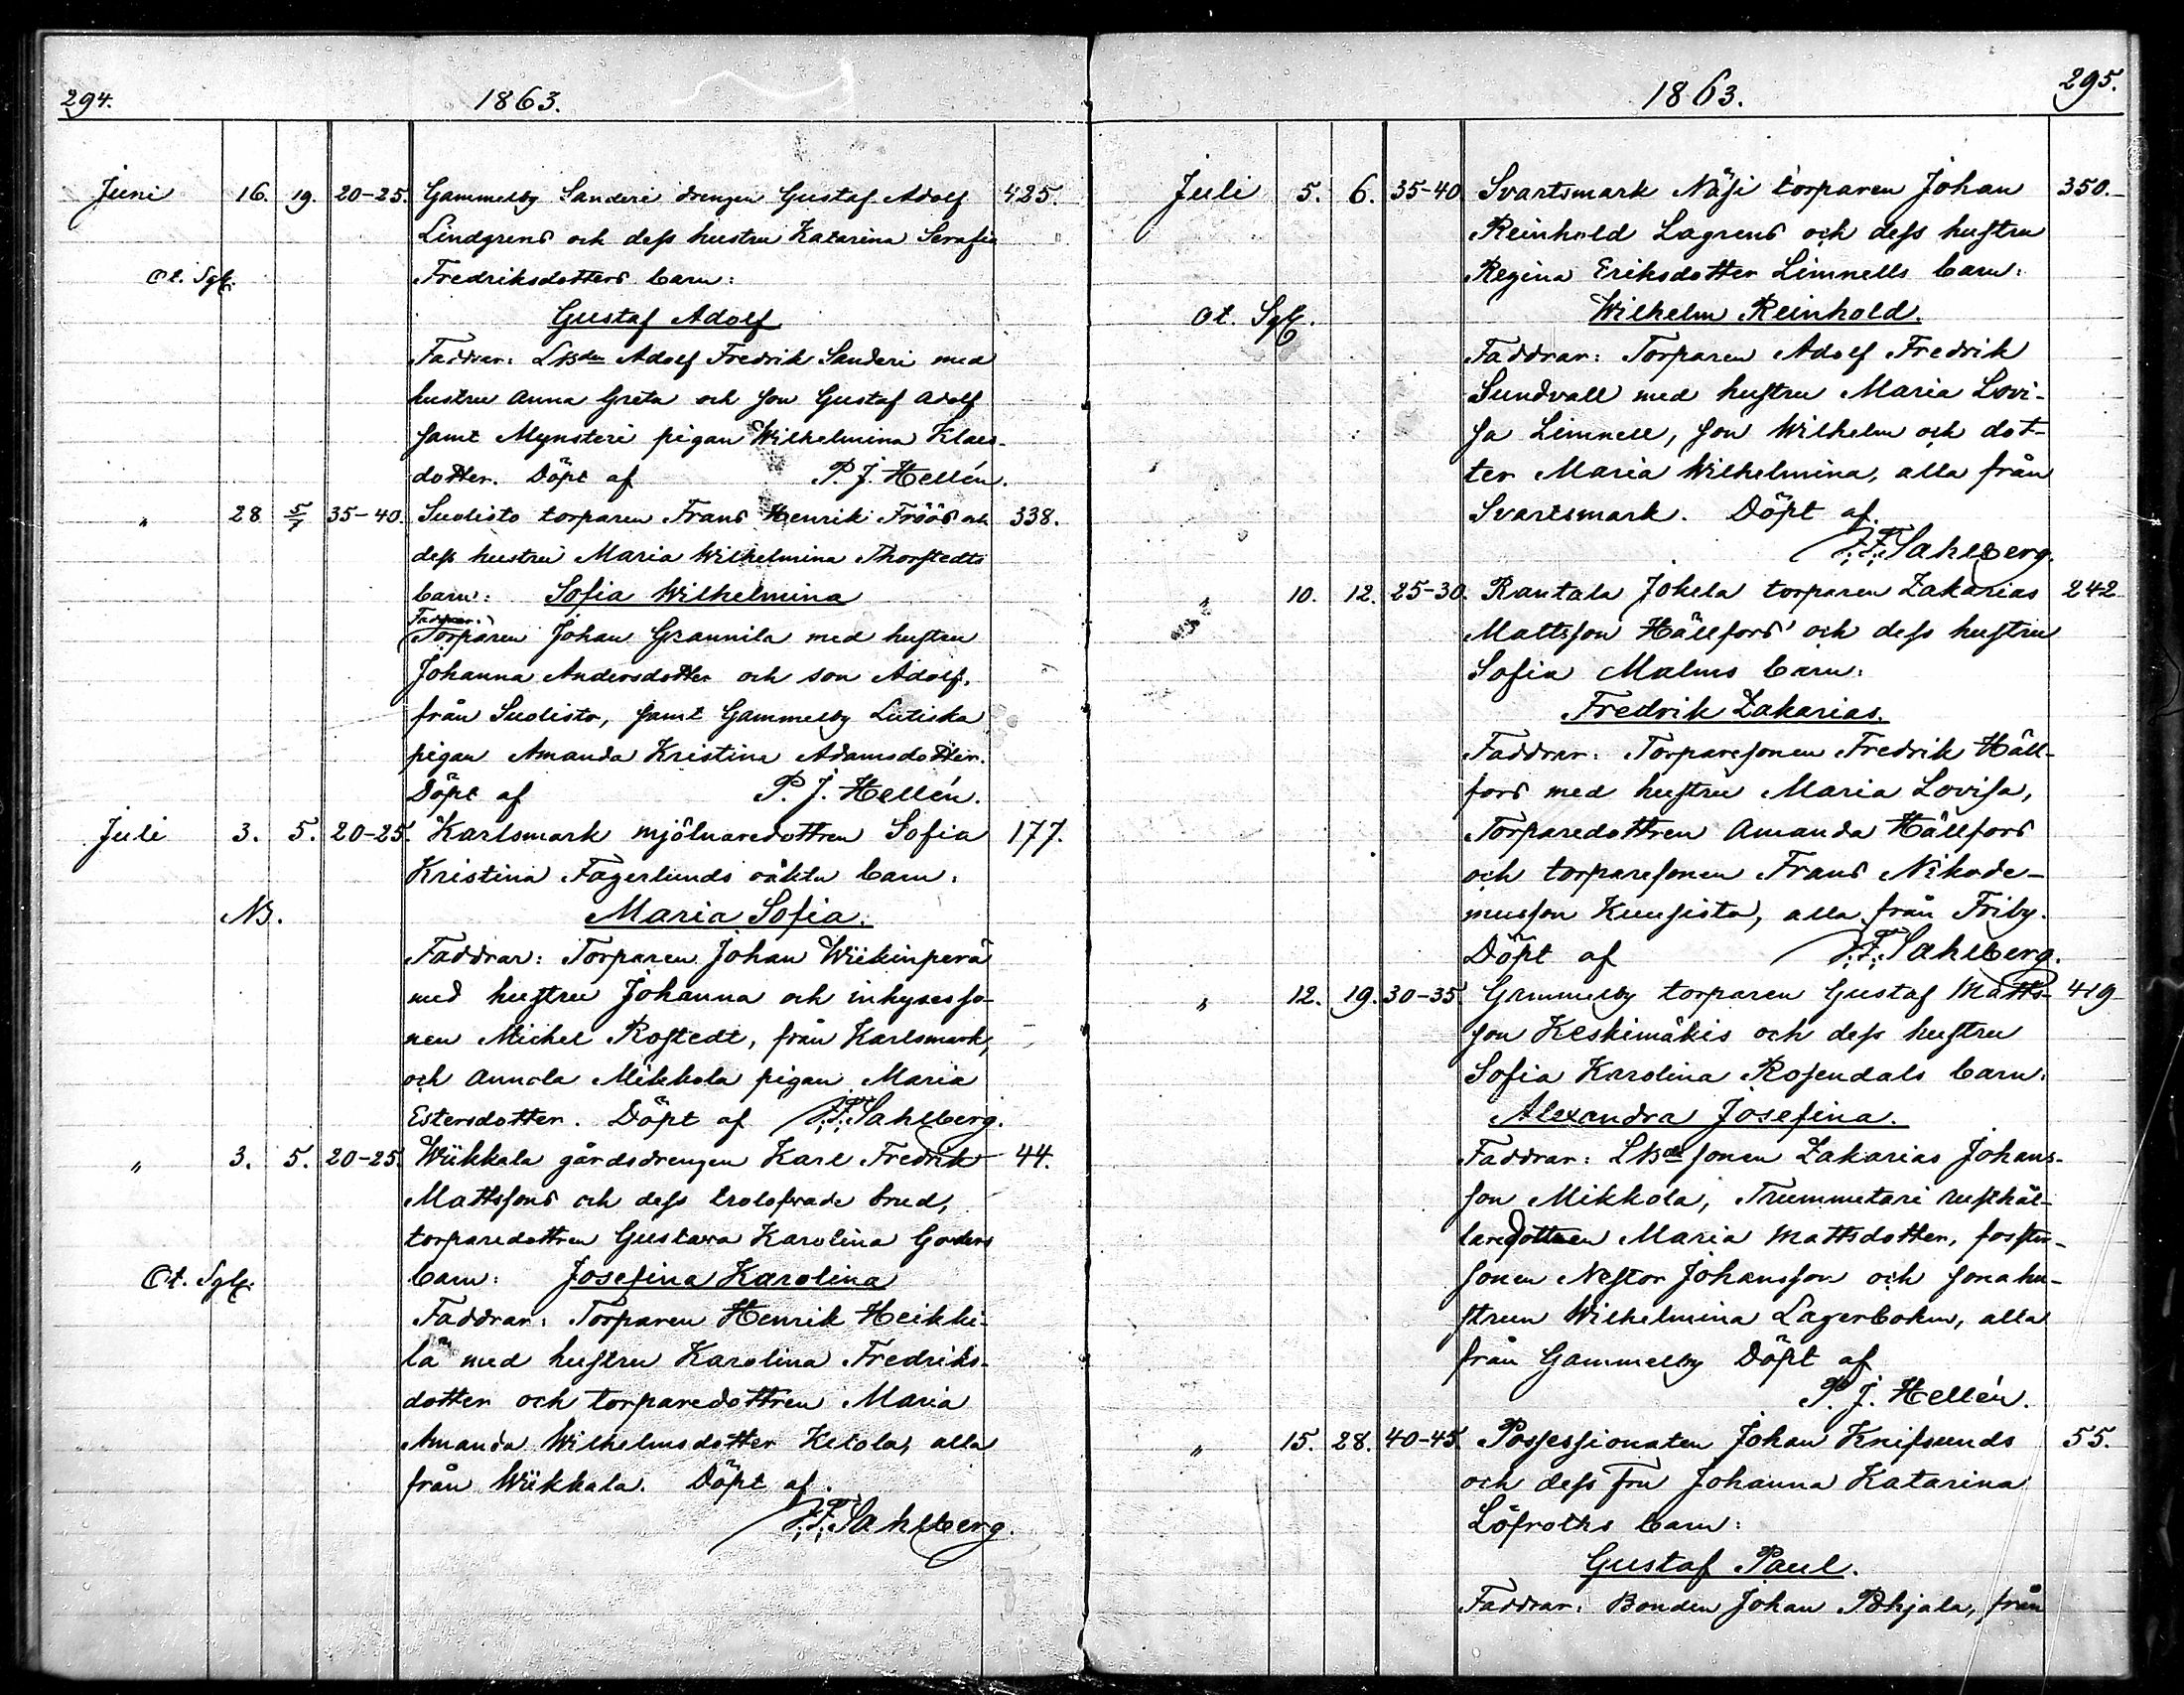 294.
1863.
Juni 16. 19. 20-25. Gammelby Sanderi drengen Gustaf Adolf 425.
Lindgrens och dess hustru Katarina Serafia
Ot. Sgf. Fredriksdotters barn:
Gustaf Adolf
Faddrar: Lbsden Adolf Fredrik Sanderi med
hustru Anna Greta och son Gustaf Adolf
samt Mynsteri pigan Wilhelmina Klaes-
dotter. Döpt af P. J. Hellén.
" 28 5/7 35-40. Suolisto torparen Frans Henrik Fröös och 338.
dess hustru Maria Wilhelmina Thorstedts
barn: Sofia Wilhelmina
Faddrar:
Torparen Johan Grannila med hustru
Johanna Andersdotter och son Adolf,
från Suolisto, samt Gammelby Lutiska
pigan Amanda Kristina Adamsdotter.
Döpt af P. J. Hellén.
Juli 3. 5. 20-25. Karlsmark mjölnaredottren Sofia 177.
Kristina Fagerlunds oäkta barn:
NB. Maria Sofia.
Faddrar: Torparen Johan Wiikinperä
med hustru Johanna och inhysesso-
nen Michel Rostedt, från Karlsmark,
och Annola Mikkola pigan Maria
Estersdotter. Döpt af F. F. Sahlberg.
" 3. 5. 20-25. Wiikkala gårdsdrengen Karl Fredrik 44.
Mattssons och dess trolofvade brud,
torparedottren Gustava Karolina Gorders
Ot. Sgf. barn: Josefina Karolina
Faddrar: Torparen Henrik Heikki-
lä med hustru Karolina Fredriks-
dotter och torparedottren Maria
Amanda Wilhelmsdotter Ketola, alla
från Wiikkala. Döpt af
F. F. Sahlberg.
295.
1863.
Juli 5. 6. 35-40 Svartsmark Näsi torparen Johan 350.
Reinhold Lagrens och dess hustru
Regina Eriksdotter Limnells barn:
Ot. Sgf. Wilhelm Reinhold.
Faddrar: Torparen Adolf Fredrik
Sundvall med hustru Maria Lovi-
sa Limnell, son Wilhelm och dot-
ter Maria Wilhelmina, alla från
Svartsmark. Döpt af
F. F. Sahlberg.
" 10. 12. 25-30. Rantala Jokela torparen Zakarias 242
Mattsson Hällfors' och dess hustru
Sofia Malms barn:
Fredrik Zakarias.
Faddrar: Torparesonen Fredrik Häll-
fors med hustru Maria Lovisa,
Torparedottren Amanda Hällfors
och torparesonen Frans Nikode-
musson Kuusisto, alla från Friby.
Döpt af F. F. Sahlberg.
" 12. 19. 30-35. Gammelby torparen Gustaf Matts- 419
son Keskimäkis och dess hustru
Sofia Karolina Rosendals barn:
Alexandra Josefina.
Faddrar: Lbsde sonen Zakarias Johans-
son Mikkola, Trummetari rusthål-
laredottren Maria Mattsdotter, foster-
sonen Nestor Johansson och sonahu-
strun Wilhelmina Lagerbohm, alla
från Gammelby Döpt af
P. J. Hellén.
" 15. 28. 40-45. Possessionaten Johan Knifsunds 55.
och dess Fru Johanna Katarina
Löfroths barn:
Gustaf Paul.
Faddrar: Bonden Johan Pohjala, från